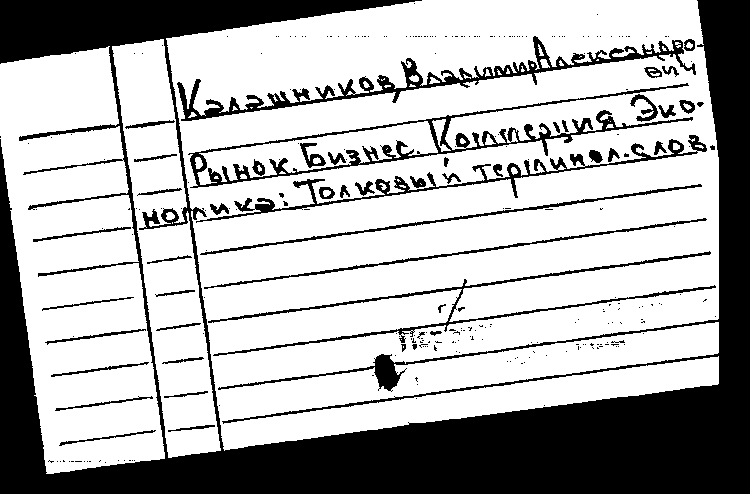 Калашников, Владимир Александро-
вич
Рынок. Бизнес. Коммерция. Эко-
номика: Толковый терминол. слов.